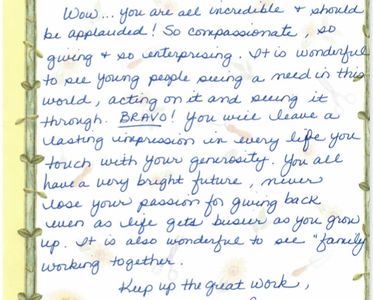 Wow... you are all incredible & should
be applauded! So compassionate, so
giving & so enterprising. It is wonderful
to see young people seeing a need in this
world, acting on it and seeing it
through. BRAVO! You will leave a
lasting impression in every life you
touch with your generosity. You all
have a very bright future, never
lose your passion for giving back
even as life gets busier as you grow
up. It is also wonderful to see "family"
working together.
Keep up the great work,